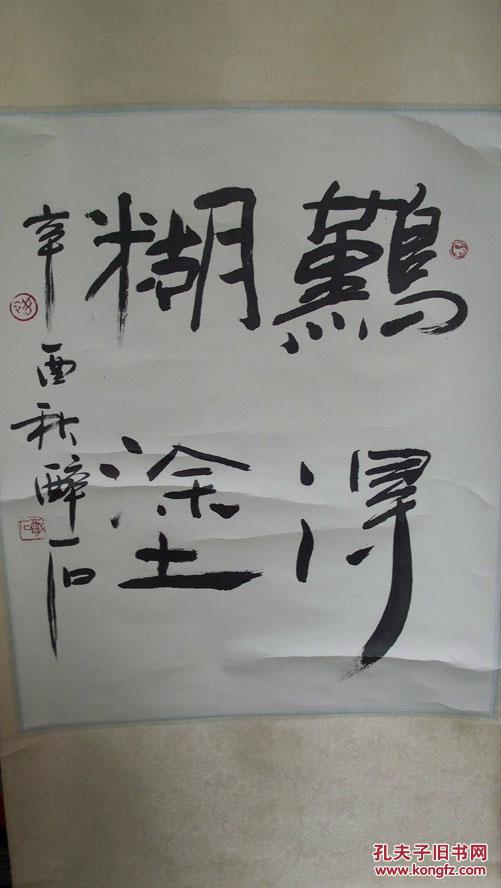 難得
糊塗
辛酉秋醉石
孔夫子旧书网
www.kongfz.com